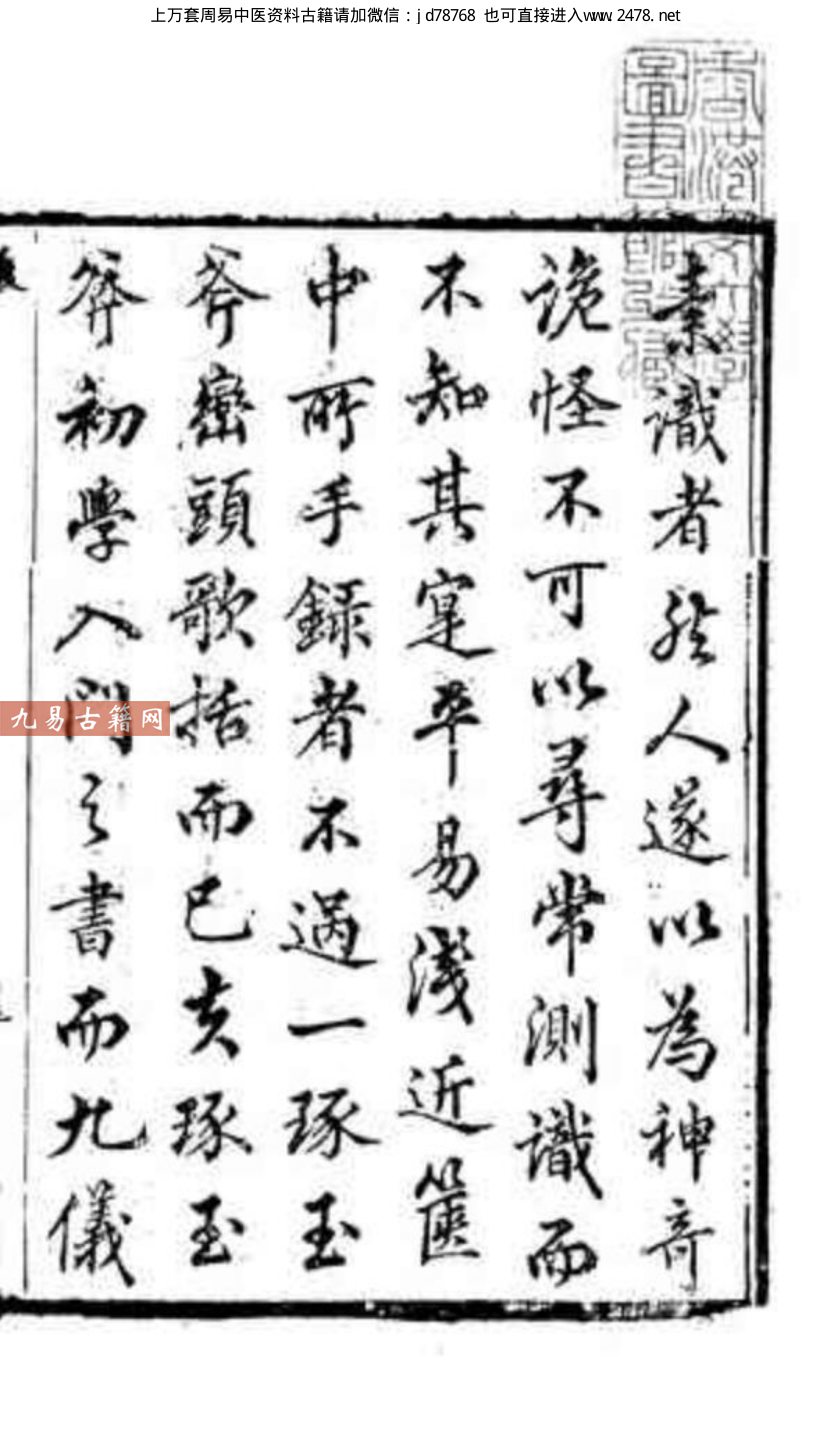 上万套周易中医资料古籍请加微信：jd78768 也可直接进入www.2478.net
素識者於人遂以為神奇
詭怪不可以尋常測識而
不知其寔平易淺近篋
中所手録者不過一琢玉
斧巒頭歌括而已夫琢玉
斧初學入門之書而九儀
九易古籍网